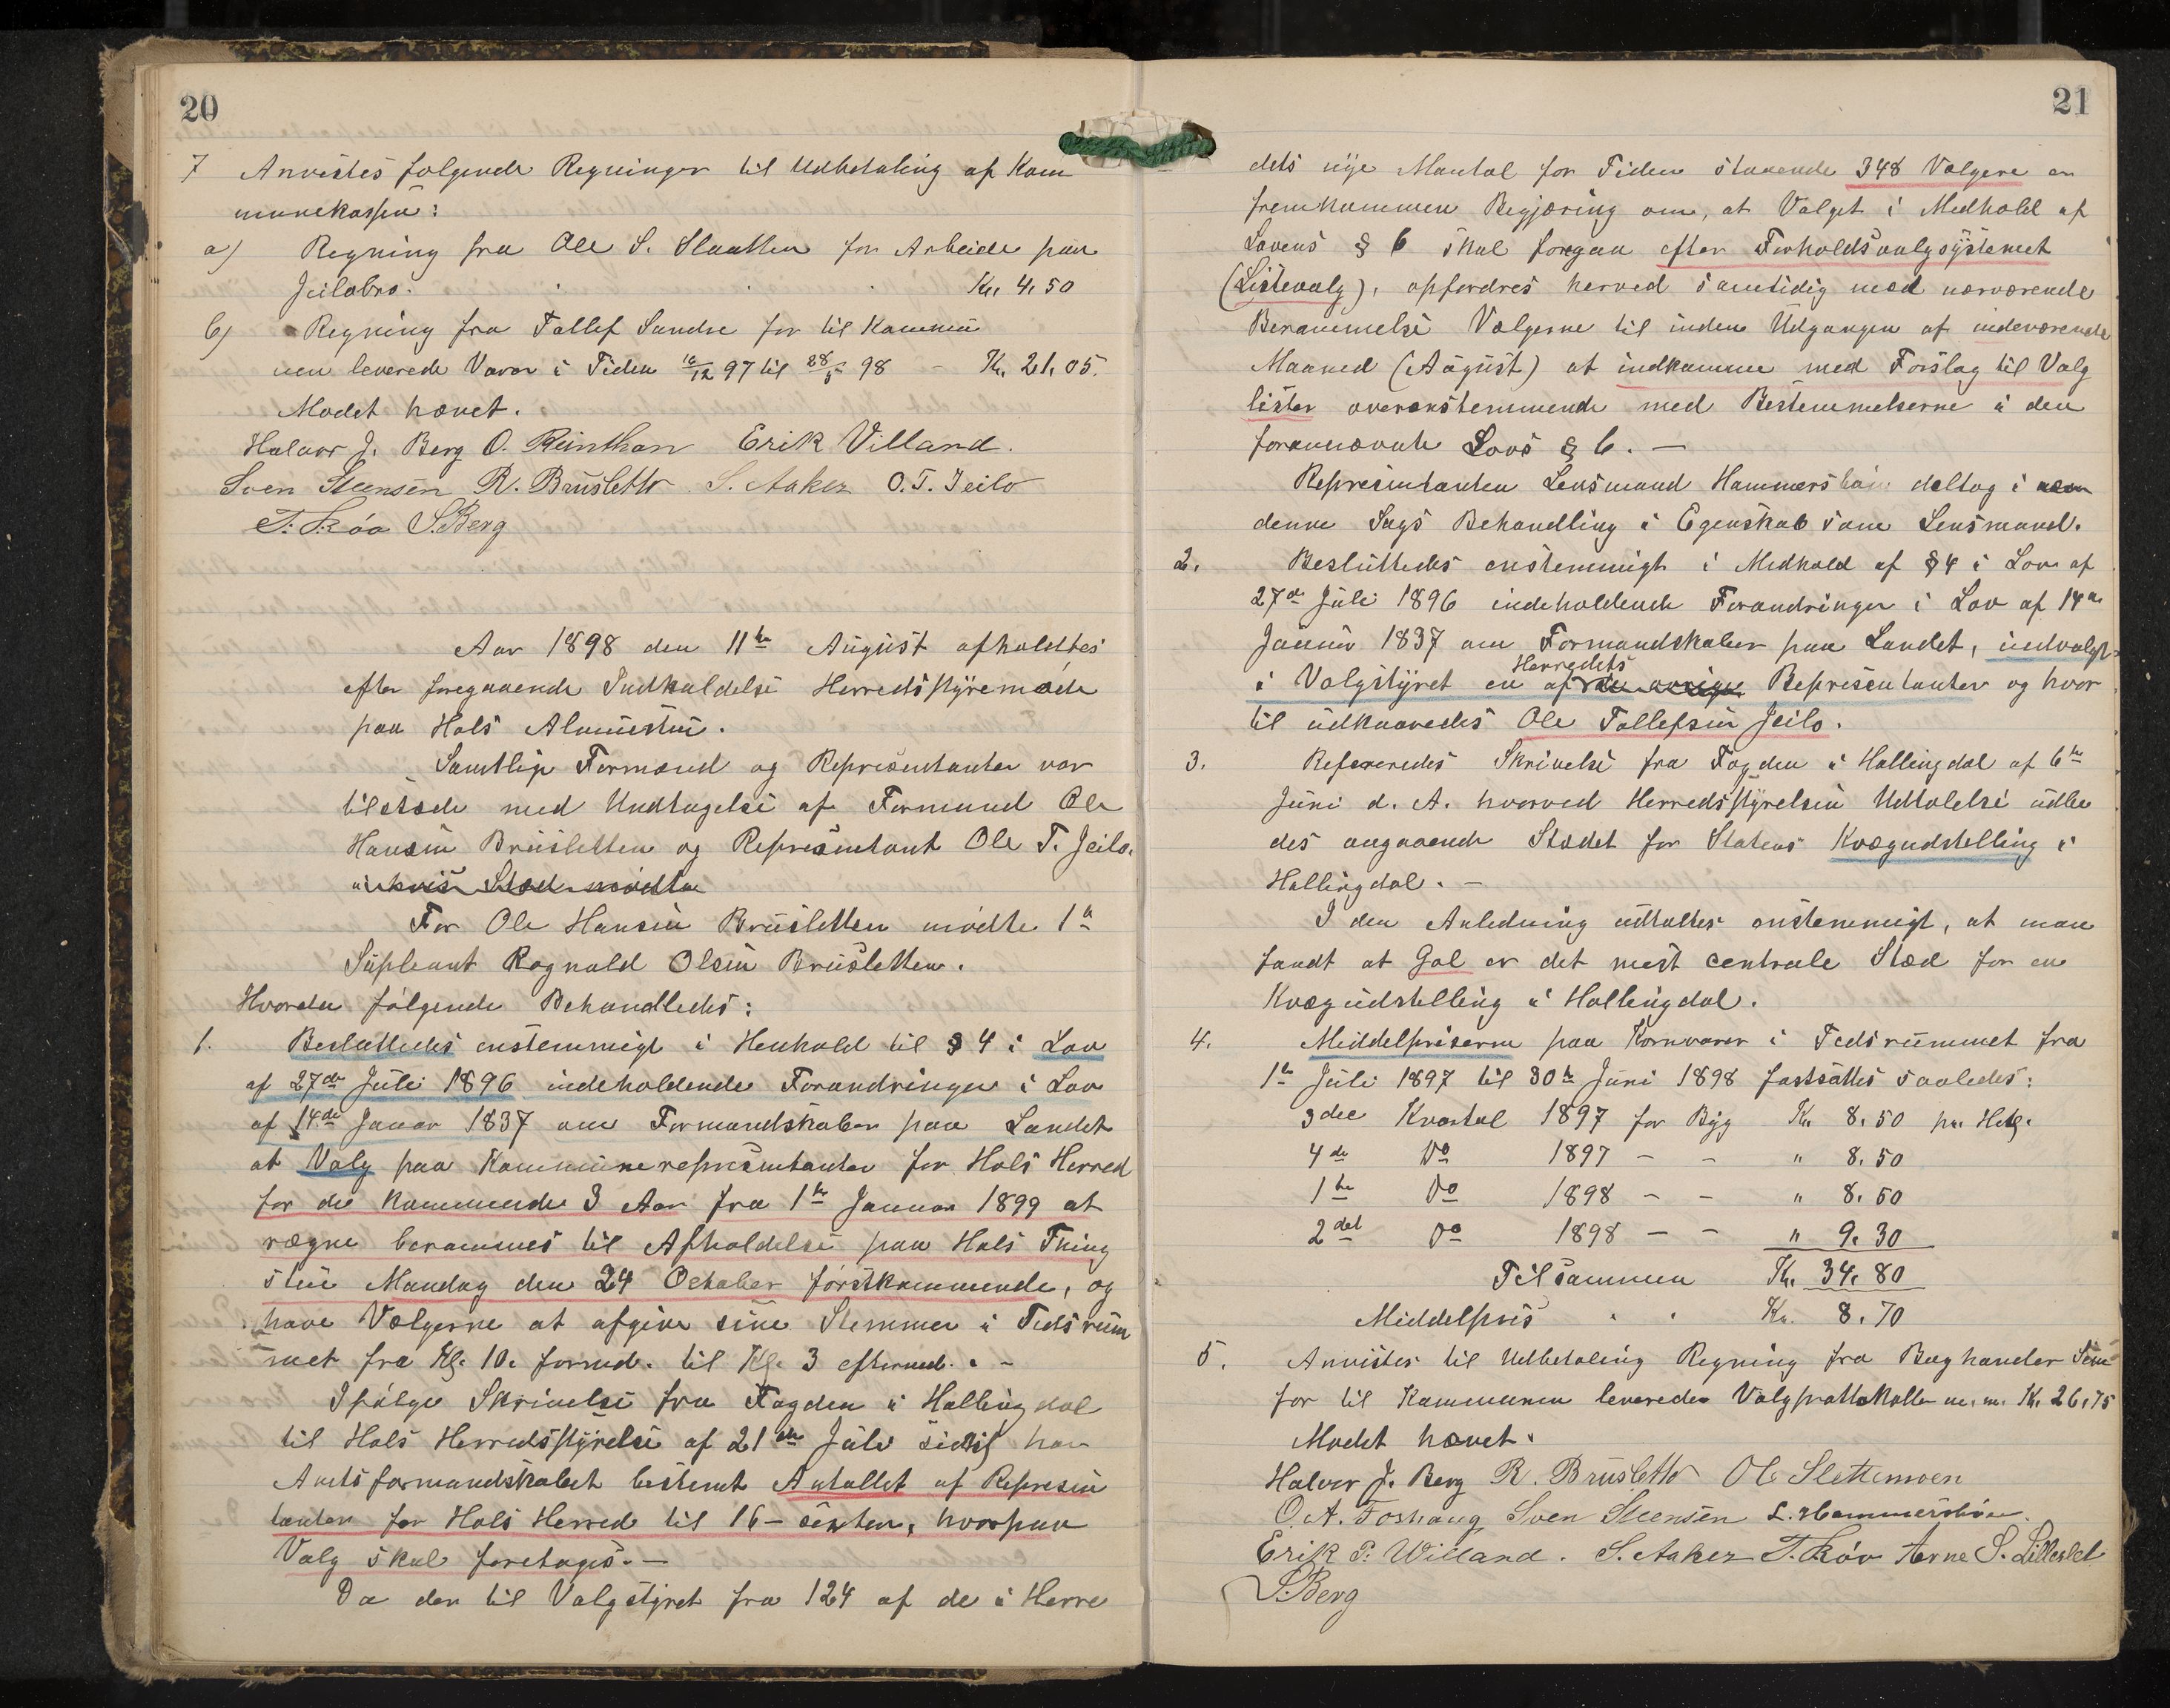 20
7 Anvistes følgende Regninger til Udbetaling af Kom
munekassen:
a) Regning fra Ole S. Slaatten for Arbeide paa
Jeilobro. . . . Kr. 4,50
b) Regning fra Tollef Sundre for til Kommu
nen leverede Varer i Tiden 16/12 97 til 28/5 98 - Kr. 21,05.
Mødet hævet.
Halvor J. Berg O. Reinthon Erik Villand.
Sven Steensen R. Brusletto. S. Aaker O.T. Jeilo
T. Skøo S. Berg
Aar 1898 den 11te August afholdtes
efter foregaaende Indkaldelse Herredsstyremøde
paa Hols Alumestue.
Samtlige Formænd og Repræsentanter var
tilstede med Undtagelse af Formand Ole
Hansen Brusletten og Repræsentant Ole T. Jeilo.
i hvis Sted mødte
For Ole Hansen Brusletten mødte 1ste
Supleant Ragnald Olsen Brusletten.
Hvorda følgende Behandledes:
1. Besluttedes enstemmigt i Henhold til § 4 i Lov
af 27de Juli 1896 indeholdende Forandringer i Lov
af 14de Januar 1837 om Formandskaber paa Landet
at Valg paa Kommunerepræsentanter for Hols Herred
for de kommende 3 Aar fra 1ste Januar 1899 at
regne berammes til Afholdelse paa Hols Thing
stue Mandag den 24 October førstkommende, og
have Vælgerne at afgive sine Stemmer i Tidsrum
met fra Kl. 10. formd. til Kl. 3 eftermd. -
Ifølge Skrivelse fra Fogden i Hallingdal
til Hols Herredsstyrelse af 21de Juli sidstl har
Amtsformandskabet bestemt Antallet af Represen
tanter for Hols Herred til 16 - sexten, hvorpaa
Valg skal foretages. -
Da der til Valgstyret fra 124 af de i Herre
21
dets nye Mantal for Tiden staaende 348 Vælgere er
fremkommen Begjæring om, at Valget i Medhold af
Lovens § 6 skal foregaa efter Forholdsvalgsystemet
(Listevalg), opfordres herved samtidig med nærværende
Berammelse Vælgerne til inden Udgangen af indeværende
Maaned (August) at indkomme med Forslag til Valg
lister overenstemmende med Bestemmelserne i den
forannævnte Lovs § 6. -
Representanten Lensmand Hammersbøen deltog i
denne Sags Behandling i Egenskab som Lensmand.
2. Besluttedes enstemmigt i Medhold af § 4 i Lov af
27de Juli 1896 indeholdende Forandringer i Lov af 14de
Januar 1837 om Formandskaber paa Landet, indvalgt
Herredets
i Valgstyret en af de øvrige Representanter og hvor
til udkaaredes Ole Tollefsen Jeilo.
3. Refereredes Skrivelse fra Fogden i Hallingdal af 6te
Juni d. A. hvorved Herredsstyrelsen Udtalelse udbe
des angaaende Stedet for Statens Kvægudstelling i
Hallingdal. -
I den Anledning udtaltes enstemmigt, at man
fandt at Gol er det mest centrale Sted for en
Kvægudstelling i Hallingdal.
4. Middelpriserne paa Kornvarer i Tidsrummet fra
1ste Juli 1897 til 30te Juni 1898 fastsattes saaledes:
3die Kvartal 1897 for Byg Kr. 8,50 pr. Hekl.
4de Do 1897 - - " 8,50
1ste Do 1898 - - " 8,50
2det Do 1898 - - " 9,30
Tilsammen Kr. 34,80
Middelpris . . Kr. 8,70
5. Anvistes til Udbetaling Regning fra Boghandler Sem
for til Kommunen leverede Valgprottokoller m. m. Kr. 26,75
Mødet hævet.
Halvor J. Berg R. Brusletto Ole Slettemoen
O. A. Foshaug Sven Steensen L. Hammersbøen.
Erik P. Willand. S. Aaker T. Skøo Arne S. Lilleslet
S. Berg